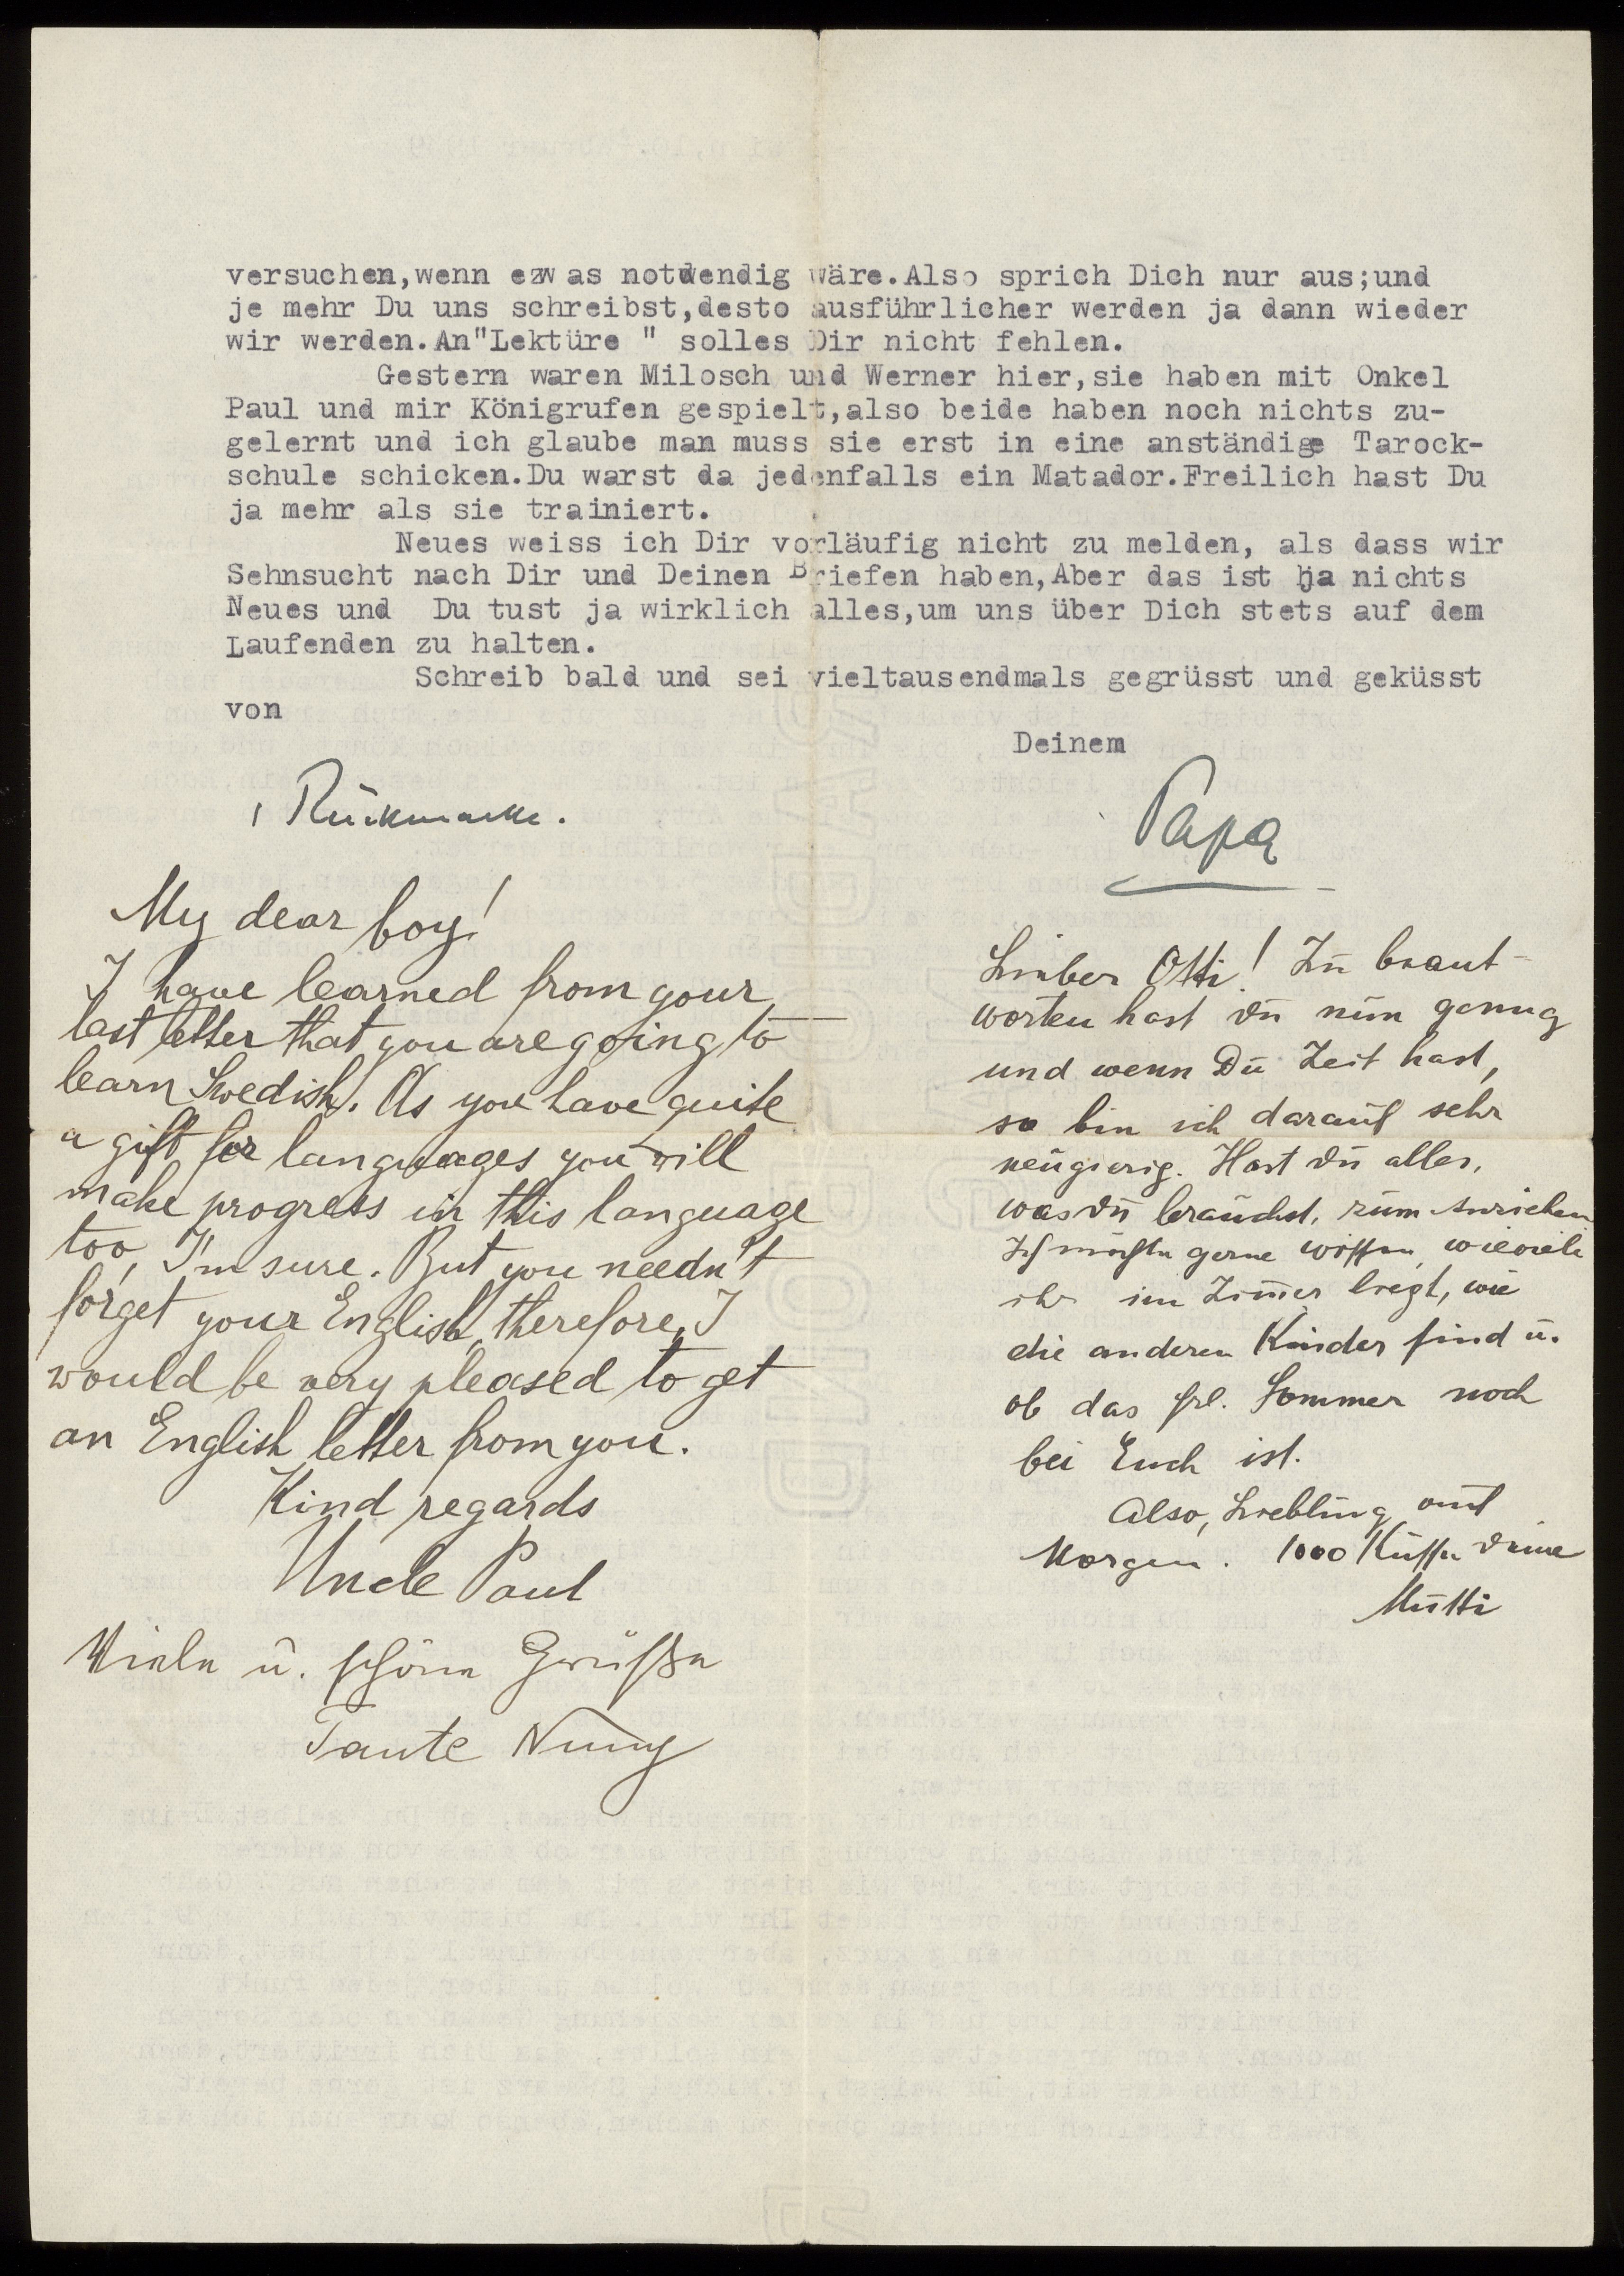 versuchen,wenn ezwas notwendig wäre.Also sprich Dich nur aus;und
je mehr Du uns schreibst,desto ausführlicher werden ja dann wieder
wir werden.An"Lektüre " solles Dir nicht fehlen.
Gestern waren Milosch und Werner hier,sie haben mit Onkel
Paul und mir Königrufen gespielt,also beide haben noch nichts zu-
gelernt und ich glaube man muss sie erst in eine anständige Tarock-
schule schicken.Du warst da jedenfalls ein Matador.Freilich hast Du
ja mehr als sie trainiert.
Neues weiss ich Dir vorläufig nicht zu melden, als dass wir
Sehnsucht nach Dir und Deinen Briefen haben,Aber das ist ja nichts
Neues und Du tust ja wirklich alles,um uns über Dich stets auf dem
Laufenden zu halten.
Schreib bald und sei vieltausendmals gegrüsst und geküsst
von
Deinem
Papa
1 Rückmarke.
My dear boy!
I have learned from your
last letter that you are going to
learn Swedish. As you have quite
a gift for languages you will
make progress in this language
too, I'm sure. But you needn't
forget your English therefore. I
would be very pleased to get
an English letter from you.
Kind regards
Uncle Paul
Viele u. schöne Grüße
Tante Nuny
Lieber Otti! Zu beant-
worten hast Du nun genug
und wenn Du Zeit hast,
so bin ich darauf sehr
neugierig. Hast Du alles,
was Du brauchst, zum Anziehen
Ich möchte gerne wissen, wieviele
ihr im Zimmer liegt, wie
die anderen Kinder sind u.
ob das Frl. Sommer noch
bei Euch ist.
Also, Liebling auf
Morgen. 1000 Küsse Deine
Mutti